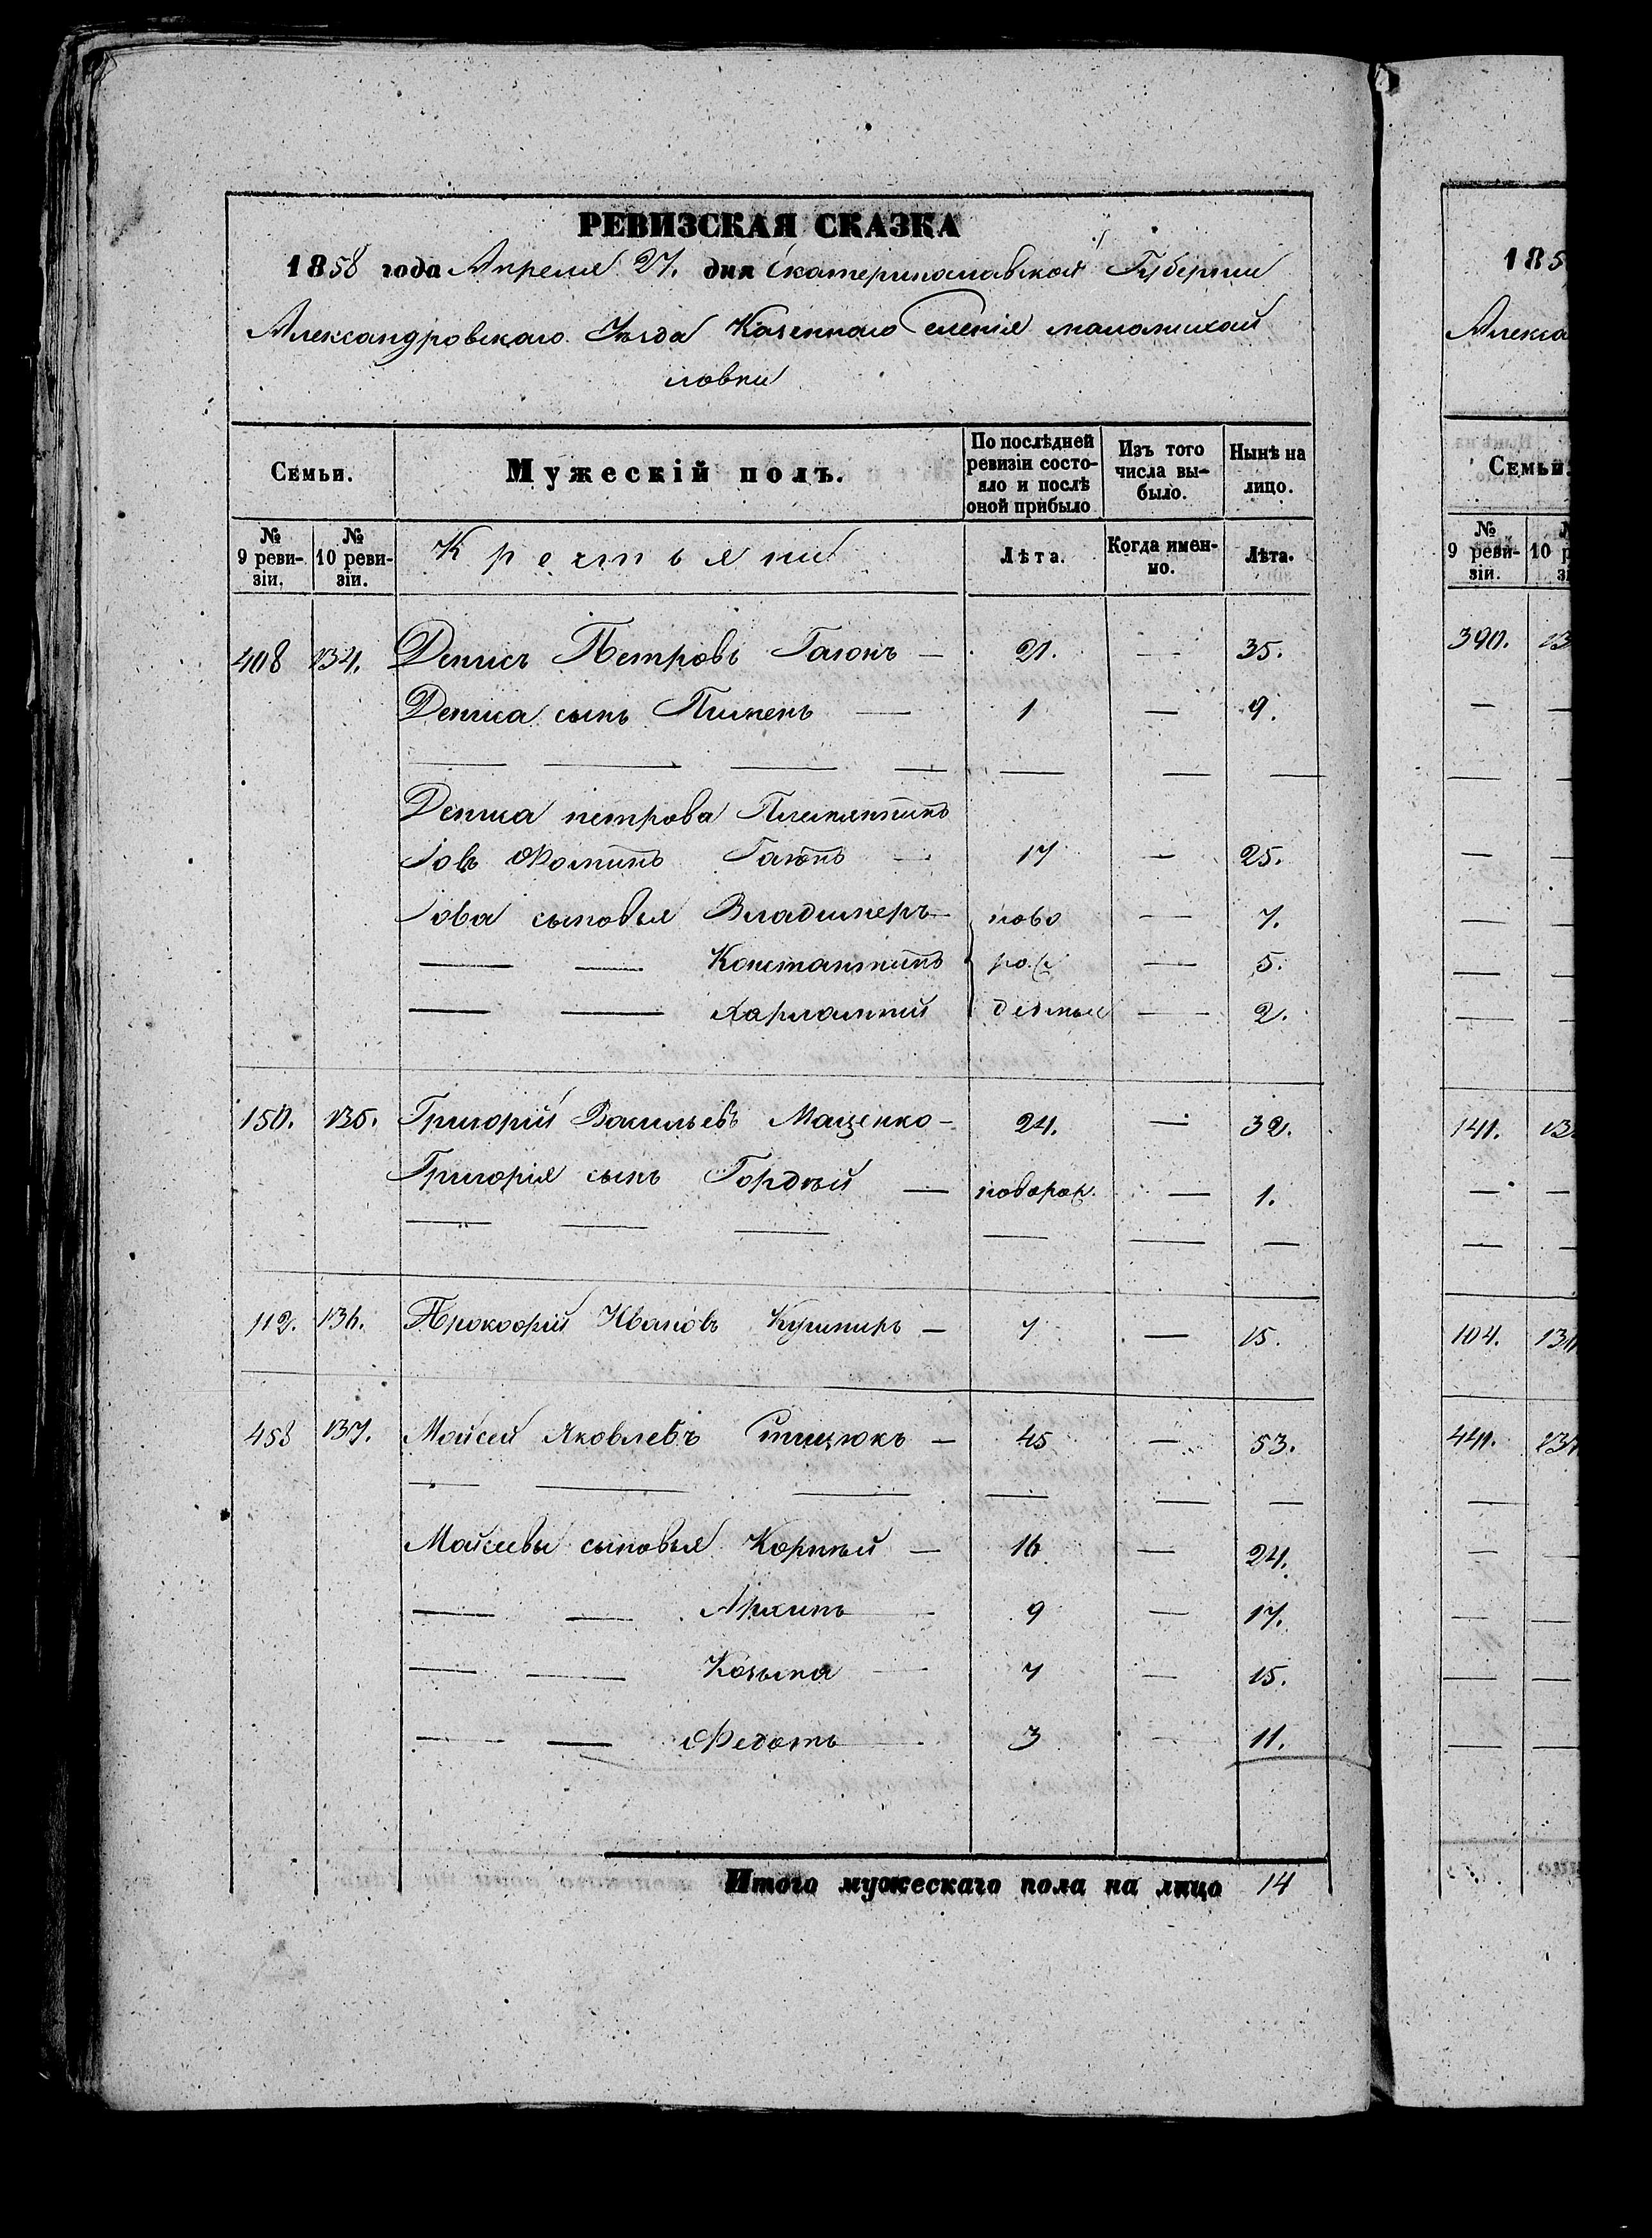 РЕВИЗСКАЯ СКАЗКА
1858 года Апреля 27. дня Екатеринославской Губернии
Александровскаго Уѣзда Казеннаго Селенія маломихай
ловки
Семьи. Мужескій полъ. По послѣдней ревизіи состояло и послѣ оной прибыло Изъ того числа выбыло. Нынѣ на лицо.
№ 9 ревизіи. № 10 ревизіи. Крестьяни Лѣта. Когда именно. Лѣта.
408 134. Денисъ Петровъ Гагонъ — 21. — 35.
Дениса сынъ Пименъ — 1 — 9.
Дениса петрова Племянникъ
Іовъ Фоминъ Гагонъ — 17 — 25.
Іова сыновья Владимеръ — ново — 7.
— — Константинъ ро — 5.
— — Харлампий денные — 2.
150. 135. Григорий Васильевъ Маценко — 24. — 32.
Григорія сынъ Гордѣй — новорож. — 1.
112. 136. Прокофий Ивановъ Кушниръ — 7 — 15.
458 137. Мойсей Яковлевъ — 45 — 53.
Мойсеевы сыновья Корнѣй — 16 — 24.
— — Архипъ — 9 — 17.
— — Козьма — 7 — 15.
— — Федотъ — 3 — 11.
Итого мужескаго пола на лицо 14
185
Алекса
Семьи.
№ 9 ревизіи. 10
390. 13
141. 13
104. 13
441. 13